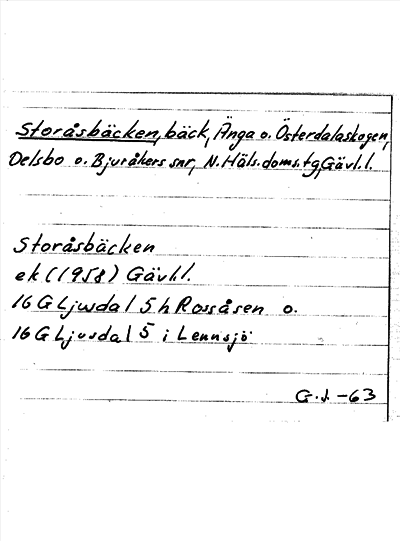 Storåsbäcken, bäck, Änga o. Österdalaskogen,
Delsbo o. Bjuråkers snr, N. Häls. doms. tg, Gävl. l.
Storåsbäcken
ek (1958) Gävl. l.
16 G Ljusdal 5 h Rossåsen o.
16 G Ljusdal 5 i Lennsjö
G. J. -63